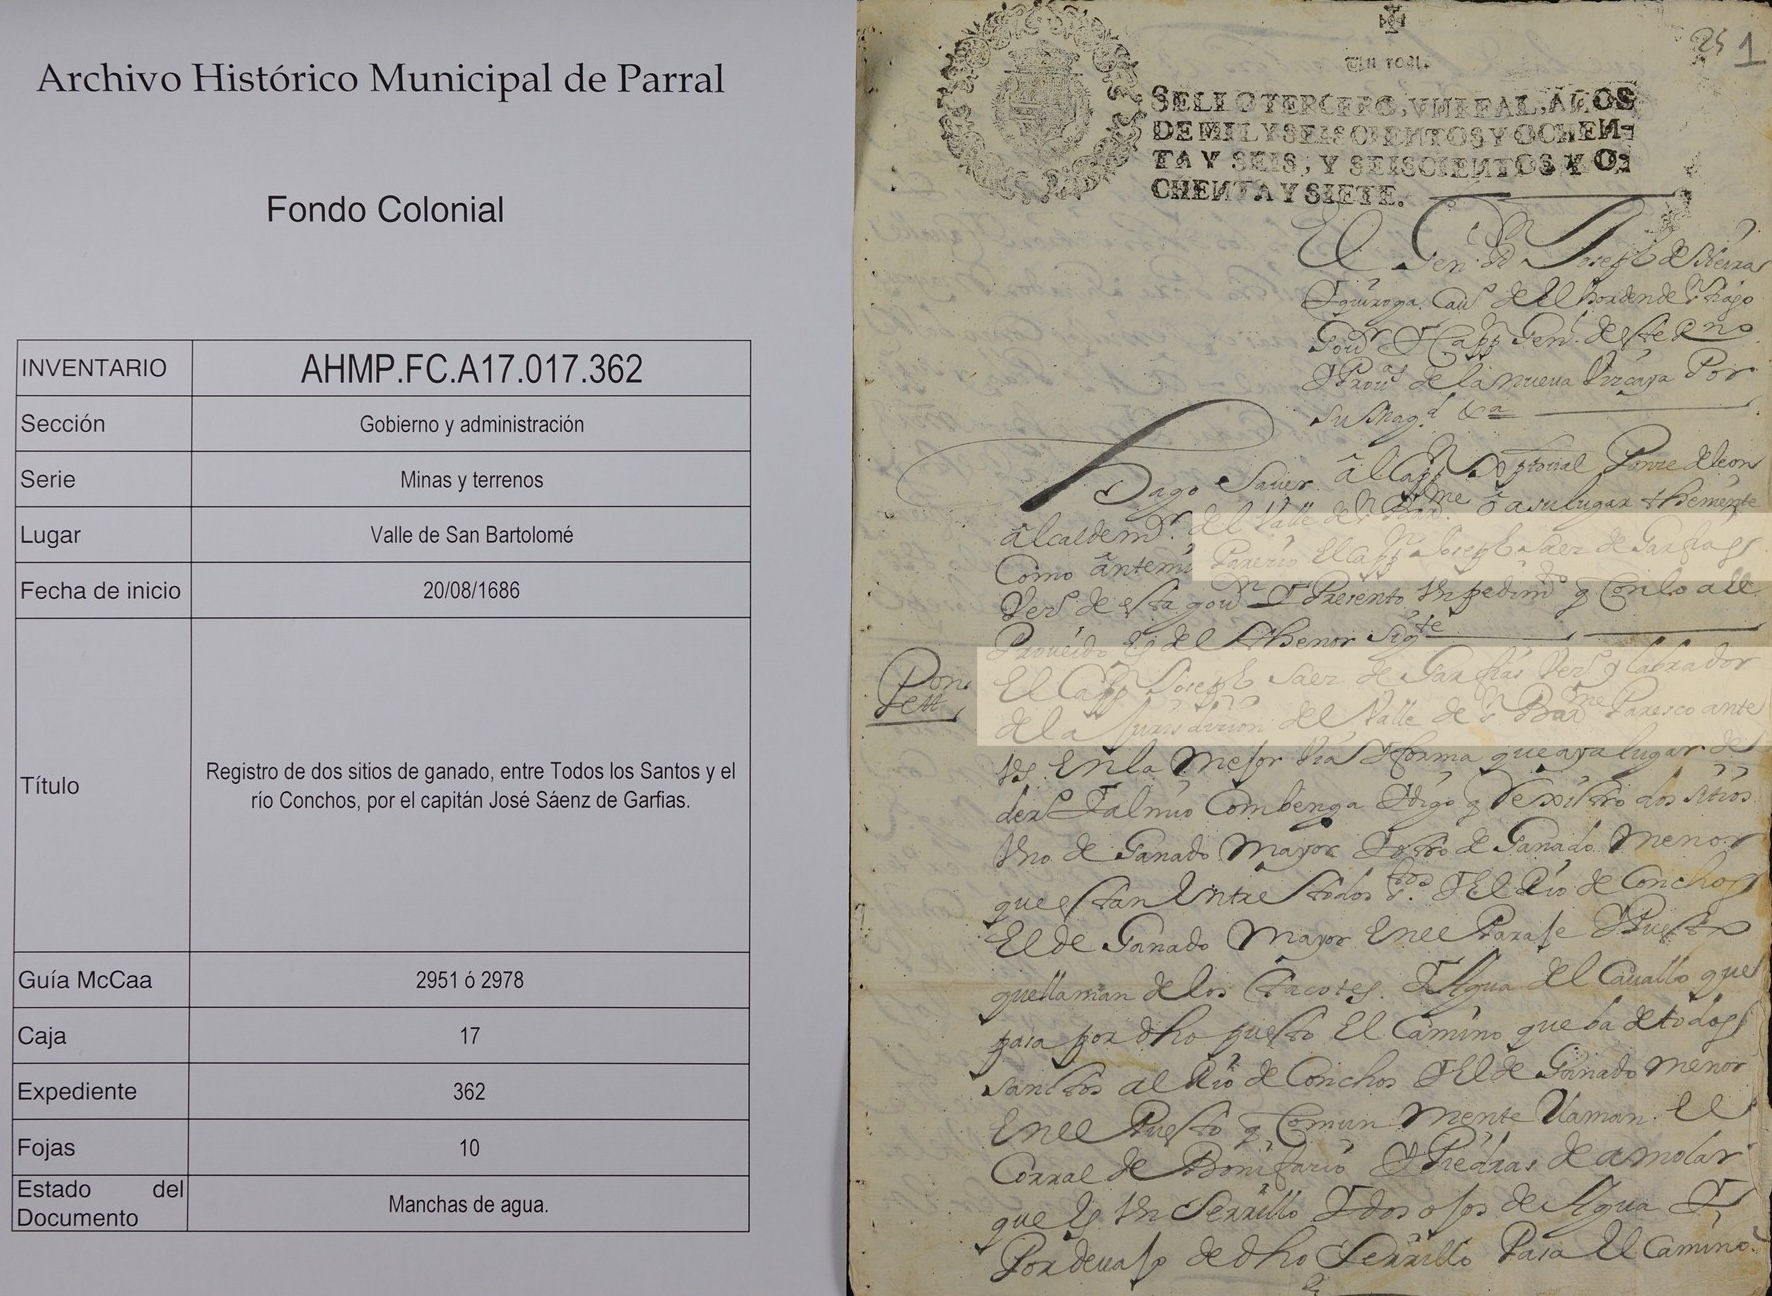 Archivo Histórico Municipal de Parral
Fondo Colonial
INVENTARIO AHMP.FC.A17.017.362
Sección Gobierno y administración
Serie Minas y terrenos
Lugar Valle de San Bartolomé
Fecha de inicio 20/08/1686
Título Registro de dos sitios de ganado, entre Todos los Santos y el
río Conchos, por el capitán José Sáenz de Garfias.
Guía McCaa 2951 ó 2978
Caja 17
Expediente 362
Fojas 10
Estado del
Documento Manchas de agua.
25 1
Un real.
SELLO TERCERO, VN REAL, AÑOS
DE MIL Y SEISCIENTOS Y OCHEN-
TA Y SEIS, Y SEISCIENTOS Y O-
CHENTA Y SIETE.
El Gen.l Dn Joseph de Neira
Y quiroga Cau.o de el horden de Sntiago
Gou.or Y Capp.n Gen.l de este Rno
Y Prou.as de la nueua Vizcaya Por
su Mag.d &a
Hago Sauer â el Capp.n Xptoual Ponze de leon
âlcalde m.r del Valle de S.n Bar.me ô a su lugar theniente
Como ânte mi Parecio El Capp.n Joseph Saez de Garfias
Vez.o de esta gou.on Y Presento Vn pedim.to q Con lo a el
Proueido es del thenor sig.te
Pon
Pett.
El Capp.n Joseph Saez de Garfias Vez.o y labrador
de la Jurisdizion del Valle de S.n Bar.me Paresco ante
Vs. En la Mejor Via Y forma que aya lugar de
der.o Y al mio Combenga Y digo q Rexistro dos sitios
Vno de Ganado Mayor Y otro de Ganado Menor
que estan Entre todos s.tos Y El Rio de Conchos
El de Ganado Mayor En el Paraje Y Puesto
que llaman de los Y Agua del Cauallo que
pasa por dho puesto El Camino que ba de todos
sanctos al Rio de Conchos Y El de Ganado Menor
En el Puesto q Comun Mente llaman El
Corral de Bonifacio Y Piedras de amolar
que es Vn Serrillo Y dos ojos de Agua Y
Por deuajo de dho Serrillo Pasa El Camino